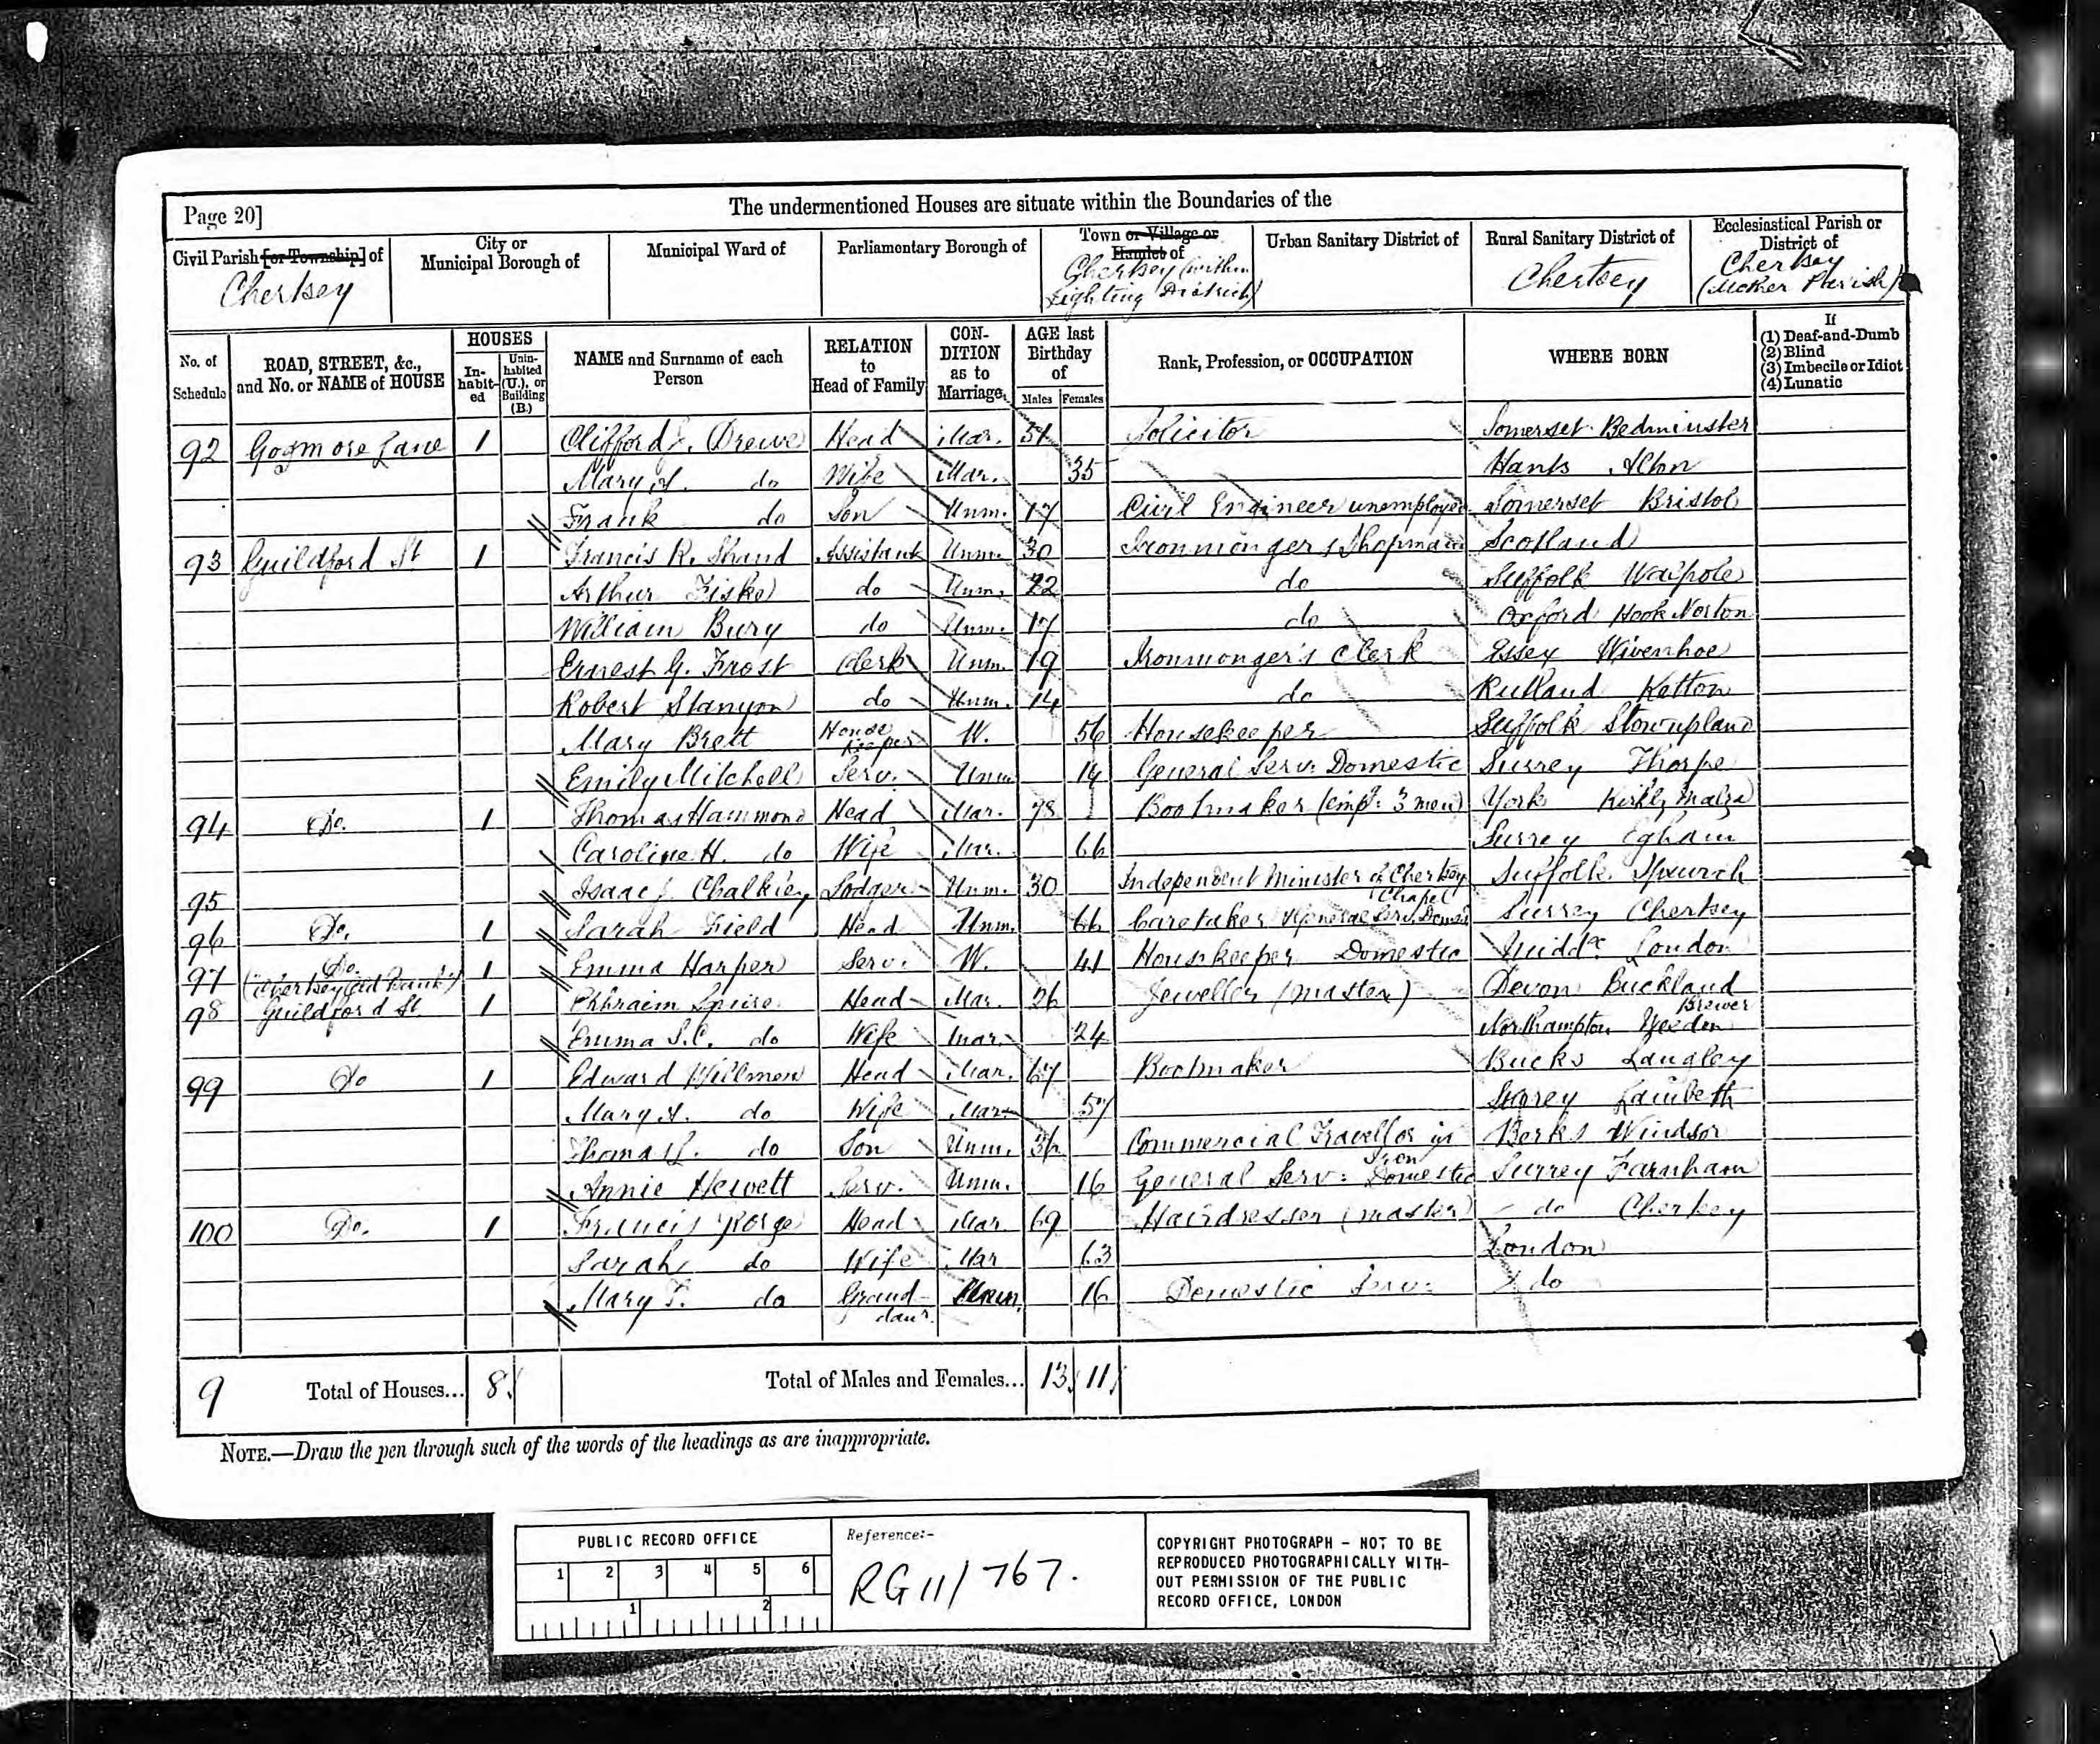 Page 20]
The undermentioned Houses are situate within the Boundaries of the
Civil Parish [or Township] of
Chertsey
City or Municipal Borough of
Municipal Ward of
Parliamentary Borough of
Town or Village or Hamlet of
Chertsey (within Lighting District)
Urban Sanitary District of
Rural Sanitary District of
Chertsey
Ecclesiastical Parish or District of
Chertsey (Mother Parish)
No. of Schedule
ROAD, STREET, &c., and No. or NAME of HOUSE
HOUSES
In-habit-ed
Unin-habited (U.), or Building (B.)
NAME and Surname of each Person
RELATION to Head of Family
CON-DITION as to Marriage
AGE last Birthday of
Males Females
Rank, Profession, or OCCUPATION
WHERE BORN
If
(1) Deaf-and-Dumb
(2) Blind
(3) Imbecile or Idiot
(4) Lunatic
92 Gogmore Lane 1 Clifford J. Drewe Head Mar. 51 Solicitor Somerset Bedminster
Mary do Wife Mar. 35 Hants Alton
Frank do Son Unm. 17 Civil Engineer unemployed Somerset Bristol
93 Guildford St 1 Francis R. Shand Assistant Unm. 30 Ironmonger's Shopman Scotland
Arthur Fiske do Unm. 22 do Suffolk Walpole
William Bury do Unm. 17 do Oxford Hook Norton
Ernest G. Frost Clerk Unm. 19 Ironmonger's Clerk Essex Wivenhoe
Robert Stanyon do Unm. 14 do Rutland Ketton
Mary Brett House Keeper W. 56 Housekeeper Suffolk Stowupland
Emily Mitchell Serv. Unm 14 General Serv: Domestic Surrey Thorpe
94 Do. 1 Thomas Hammond Head Mar. 78 Bootmaker (emp: 3 men) York Kirkby Malza
Caroline H. do Wife Mar. 66 Surrey Egham
95 Isaac J. Chalkley Lodger Unm. 30 Independent Minister of Chertsey Chapel Suffolk Ipswich
96 Do. 1 Sarah Field Head Unm. 66 Caretaker General Serv. Domes Surrey Chertsey
97 Do. (Chertsey Old Bank) 1 Emma Harper Serv. W. 41 Housekeeper Domestic Middx London
98 Guildford St. 1 Ephraim Squire Head Mar. 26 Jeweller (master) Devon Buckland Brewer
Emma S.C. do Wife Mar. 24 Northampton Weedon
99 Do 1 Edward Willmer Head Mar. 67 Bootmaker Bucks Langley
Mary A. do Wife Mar 57 Surrey Lambeth
Thomas do Son Unm. 36 Commercial Traveller in Iron Berks Windsor
Annie Hewett Serv. Unm. 16 General Serv: Domestic Surrey Farnham
100 Do. 1 Francis Head Mar 69 Hairdresser (master) do Chertsey
Sarah do Wife Mar 63 London
Mary F. do Grand-daur. Unm. 16 Domestic Serv: do
9 Total of Houses... 8 Total of Males and Females... 13 11
NOTE.—Draw the pen through such of the words of the headings as are inappropriate.
PUBLIC RECORD OFFICE
1 2 3 4 5 6
1 2
Reference:-
RG 11/767.
COPYRIGHT PHOTOGRAPH - NOT TO BE
REPRODUCED PHOTOGRAPHICALLY WITH-
OUT PERMISSION OF THE PUBLIC
RECORD OFFICE, LONDON